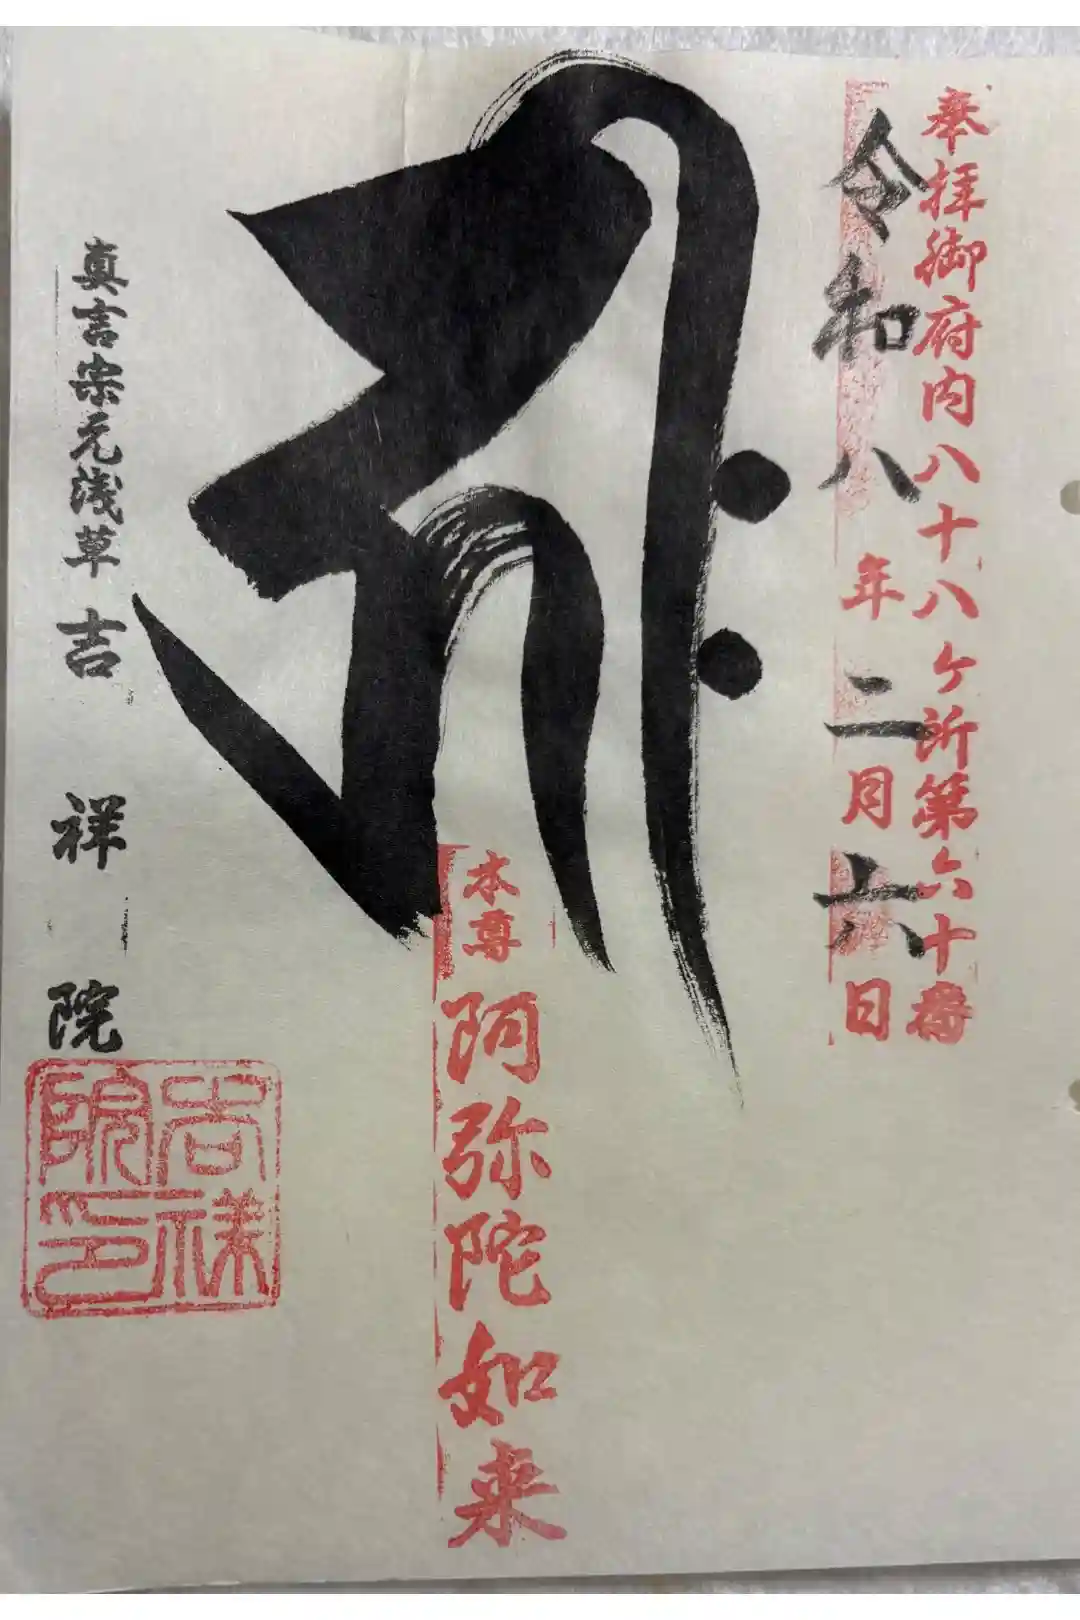 奉拝御府内八十八ヶ所第六十番
令和八年二月六日
𑖮𑖿𑖨𑖱𑖾
本尊 阿弥陀如来
真言宗元浅草 吉祥院
吉祥院印